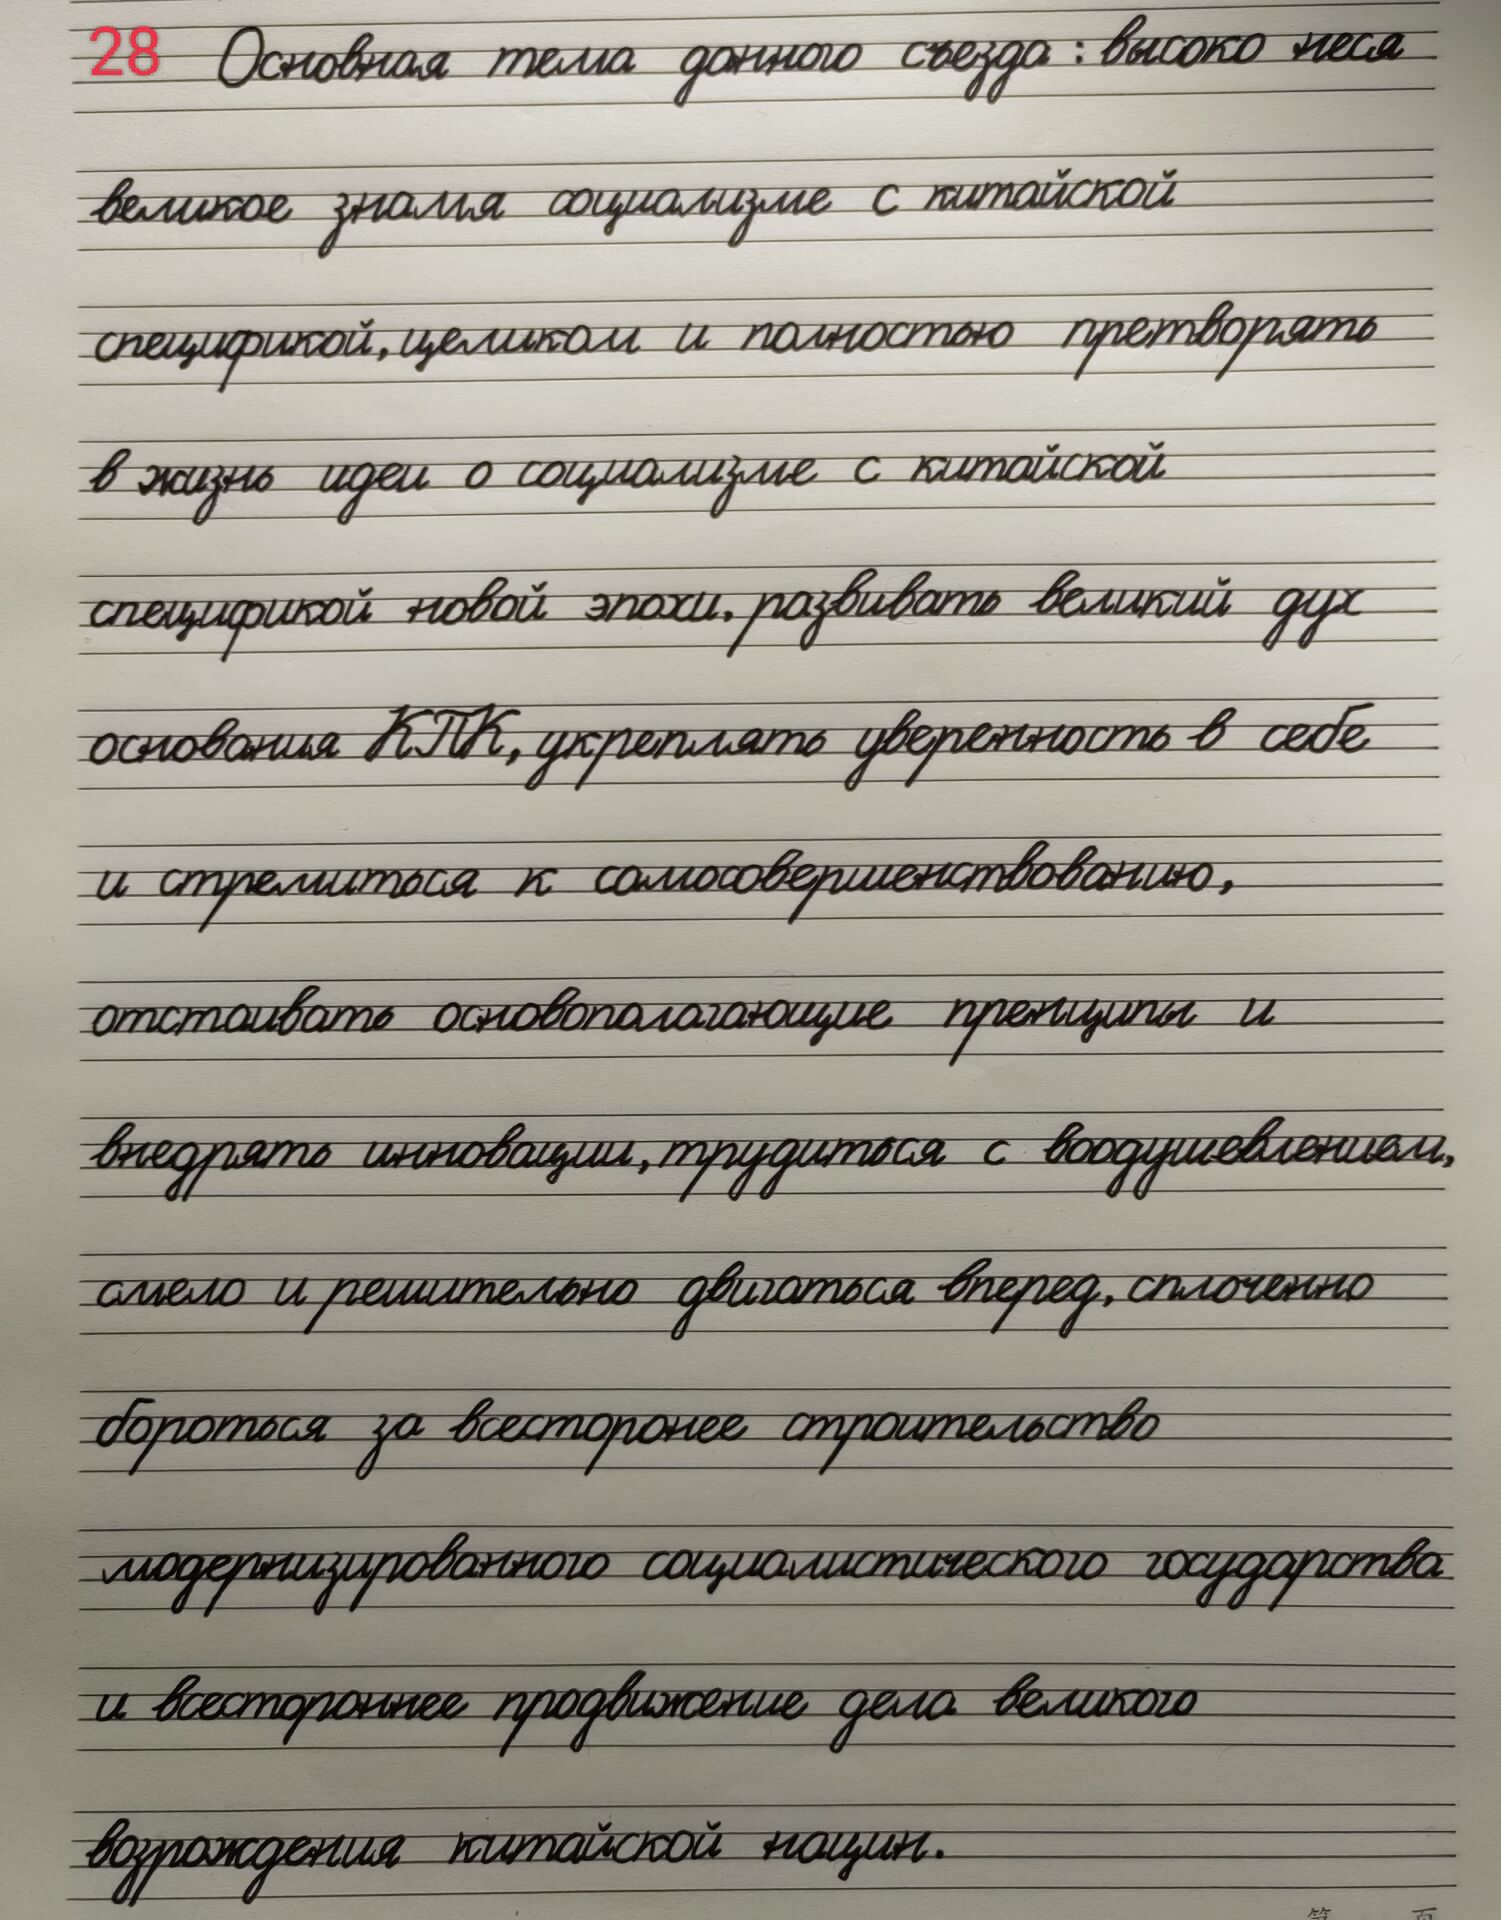 28 Основная тема данного съезда: высоко неся
великое знамя социализме с китайской
спецификой, целиком и полностью претворять
в жизнь идеи о социализме с китайской
спецификой новой эпохи. развивать великий дух
основания КПК, укреплять уверенность в себе
и стремиться к самосовершенствованию,
отстаивать основополагающие пренципы и
внедрять инновации, трудиться с воодушевлением,
смело и решительно двигаться вперед, сплоченно
бороться за всесторонее строительство
модернизированного социалистического государства
и всестороннее продвижение дела великого
возрождения китайской нации.
第 页